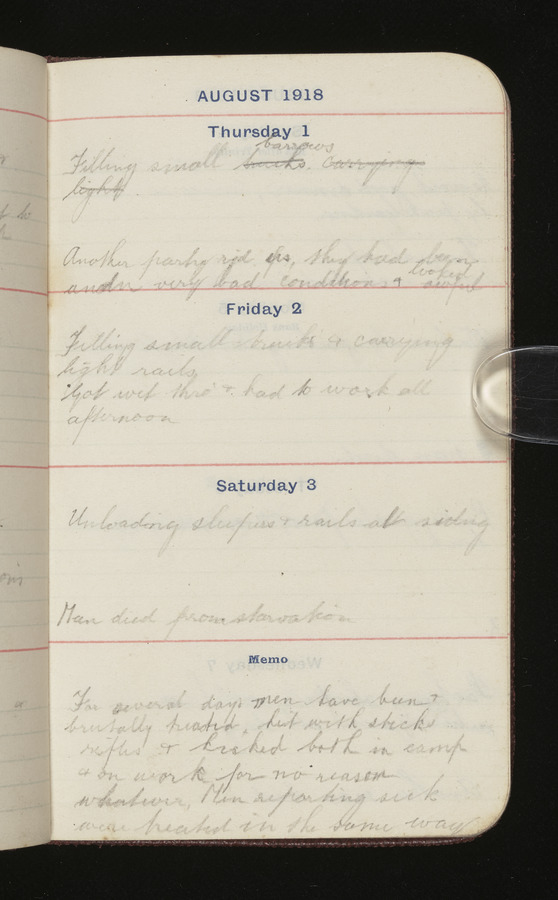 AUGUST 1918
Thursday 1
barrows
Filling small trucks. Carrying
light
Another party rejd us, they had been
looked
under very bad conditions & awful
Friday 2
Filling small trucks & carrying
light rails
Got wet thro' & had to work all
afternoon
Saturday 3
Unloading sleepers & rails at siding
Man died from starvation
Memo
For several days men have been
brutally treated, hit with sticks
rifles & kicked both in camp
& on work for no reason
whatever, Men reporting sick
were treated in the same way